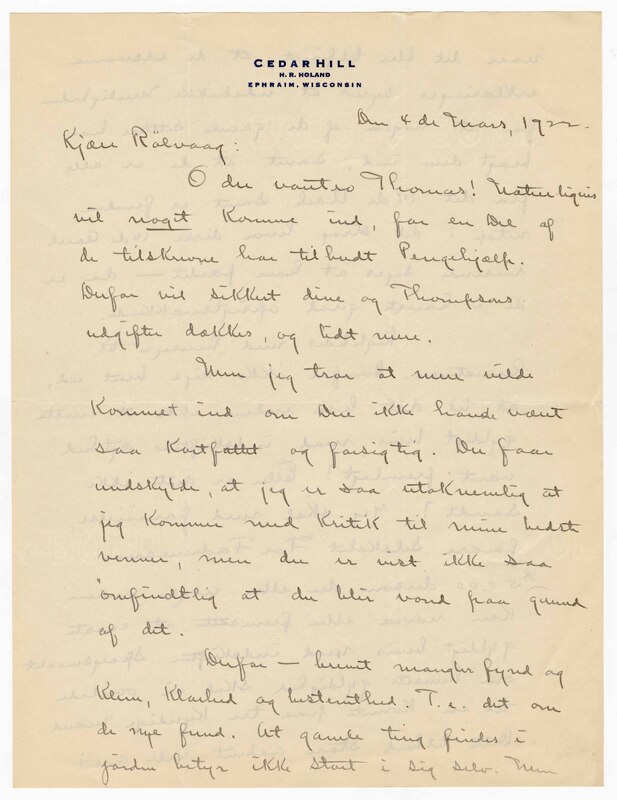 CEDAR HILL
H. R. HOLAND
EPHRAIM, WISCONSIN
Den 4 de Mars, 1922.
Kjære Rölvaag:
O du vantro Thomas! Naturligvis
vil noget komme ind, for en Del af
de tilskrevne har tilbudt Pengehjælp.
Derfor vil sikkert dine og Thompsons
udgifter dækkes, og lidt mere.
Men jeg tror at mere vilde
kommet ind om Du ikke havde været
saa kortfattet og forsigtig. Du faar
undskylde, at jeg er saa utaknemlig at
jeg kommer med Kritik til mine bedste
venner, men du er vist ikke saa
ömfindtlig at du blir vond paa grund
af det.
Derfor — brevet mangler fynd og
Klem, Klarhed og bestemthed. T. e. det om
de nye fund. At gamle ting findes i
jorden betyr ikke stort i sig selv. Men